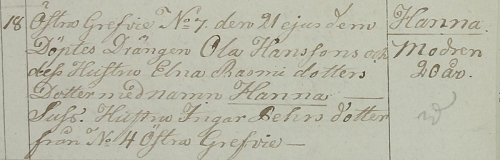 18 Östra Grefvie No 7. den 21 ejusdem Hanna.
Döptes Drängen Ola Hanssons och Modren
dess Hustru Elna Rasmi dotters 20 år.
Dotter med namn Hanna —
Susc. Hustru Ingar Behrs dotter
från No 4 Östra Grefvie —